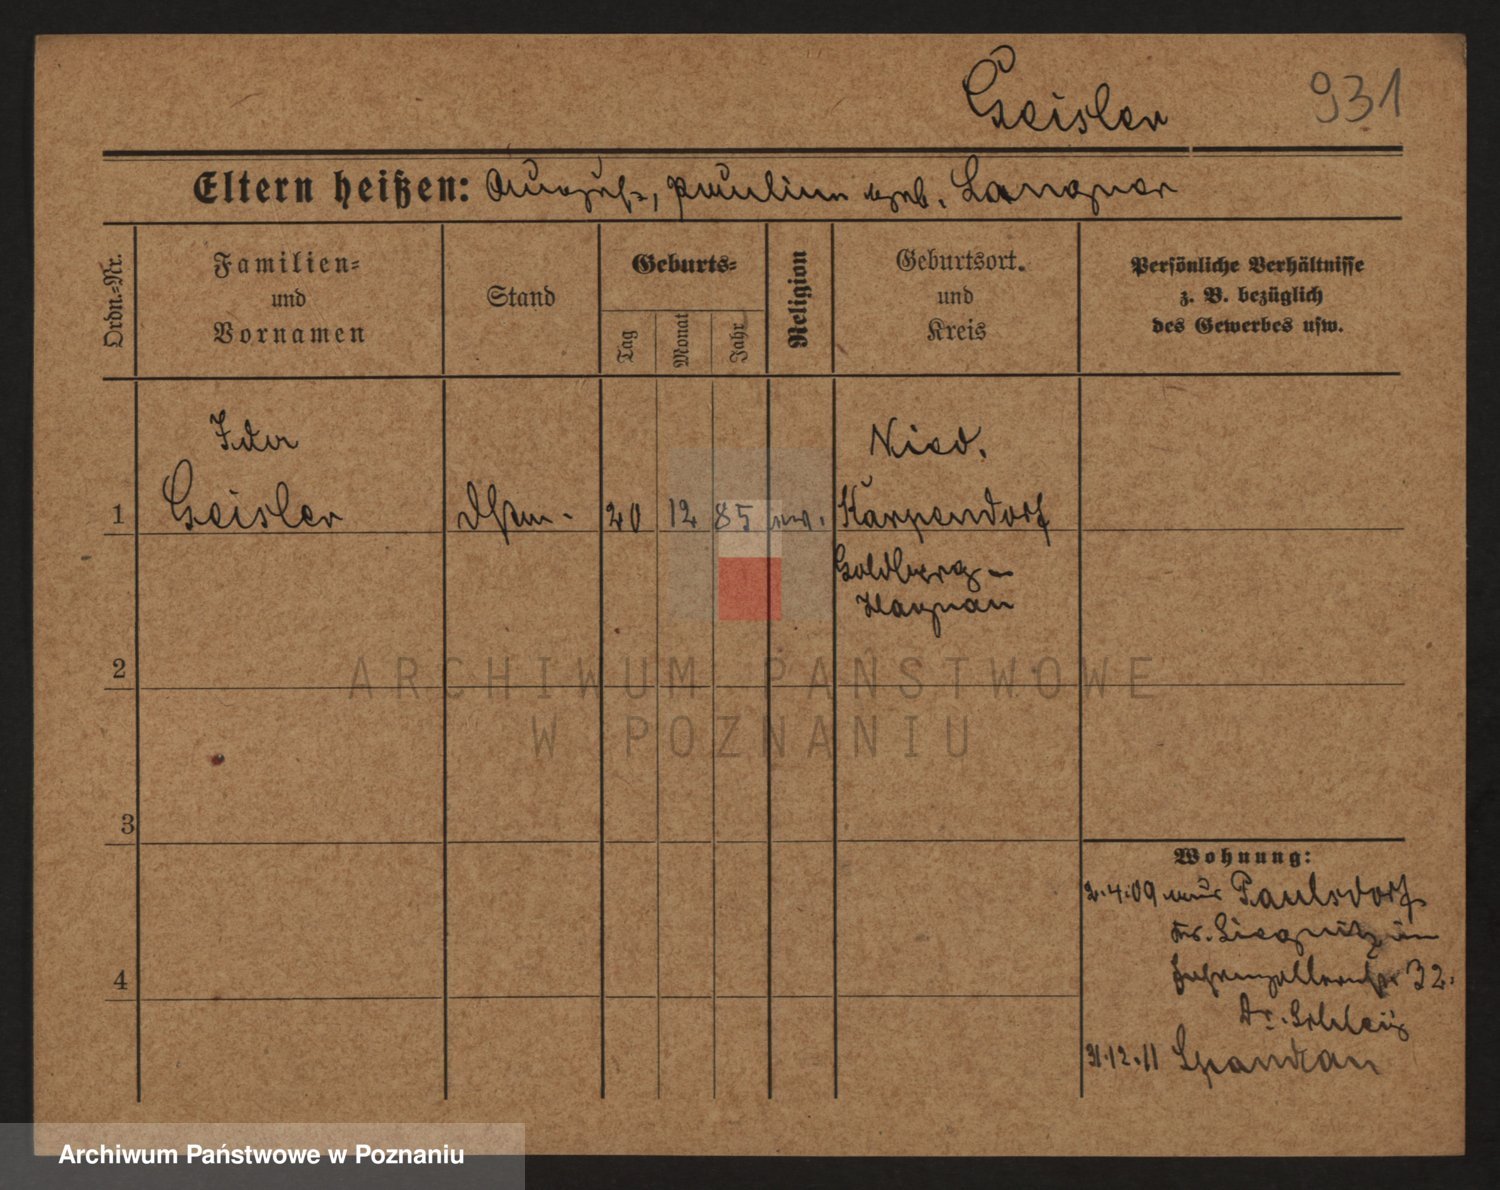 Geisler 931
Eltern heißen: August, Pauline geb. Langner
Ordn.=Nr.
Familien=
und
Vornamen
Stand
Geburts=
Tag
Monat
Jahr
Religion
Geburtsort
und
Kreis
Persönliche Verhältnisse
z. B. bezüglich
des Gewerbes usw.
Ida Nied.
1 Geisler 20 12 85 Karpendorf
Goldberg-
Haynau
2
ARCHIWUM PAŃSTWOWE
W POZNANIU
3
Wohnung:
2.4.09 aus Paulsdorf
Kr. Liegnitz in
4 Hohenzollernstr 32.
Dr.
31.12.11 Spandau
Archiwum Państwowe w Poznaniu